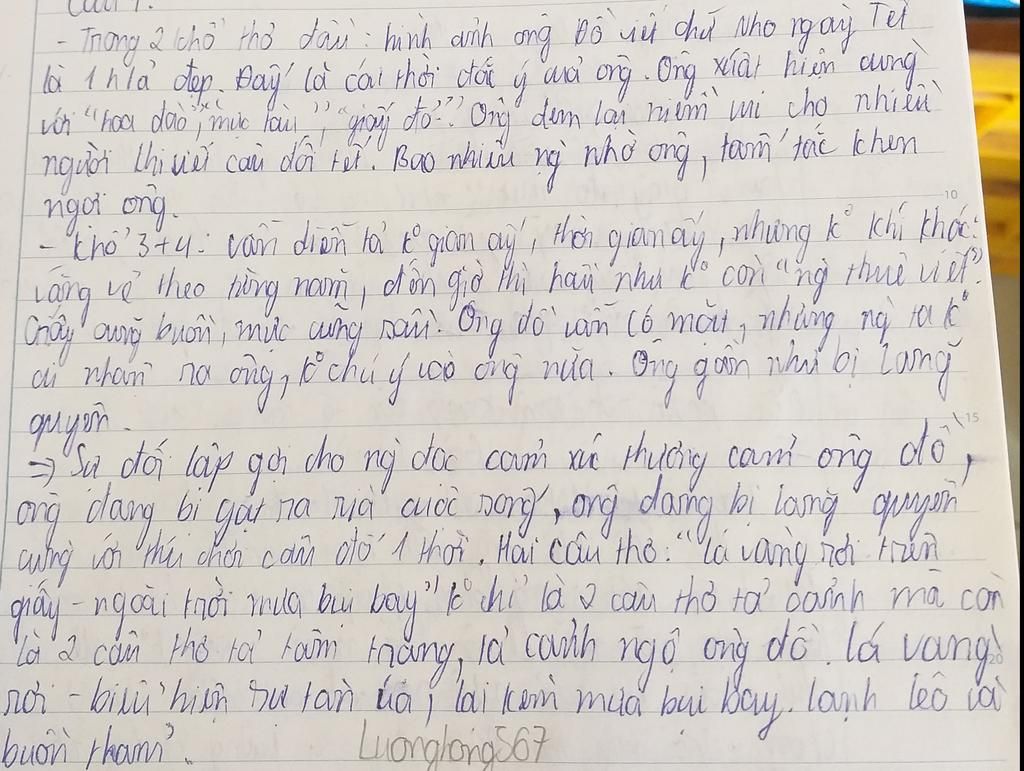 Câu 1.
- Trong 2 khổ thơ đầu: hình ảnh ông Đồ viết chữ Nho ngày Tết
là 1 h/ả đẹp. Đây là cái thời đắc ý của ông. Ông xuất hiện cùng
với "hoa đào", "mực tàu", "giấy đỏ". Ông đem lại niềm vui cho nhiều
người khi viết câu đối tết. Bao nhiêu ng nhờ ông, tấm tắc khen
ngợi ông.
- Khổ 3+4: vẫn diễn tả k° gian ấy, thời gian ấy, nhưng k° khí khác:
vắng vẻ theo từng năm, đến giờ thì hầu như k° còn "ng thuê viết".
Giấy cũng buồn, mực cũng sầu. Ông đồ vẫn có mặt, nhưng ng ta k°
nhận ra ông, k° chú ý vào ông nữa. Ông gần như bị lãng
quyên.
=> Sự đối lập gợi cho ng đọc cảm xúc thương cảm ông đồ,
ông đang bị gạt ra rìa cuộc sống, ông đang bị lãng quyên
cùng với thú chơi câu đố 1 thời. Hai câu thơ: "lá vàng rơi trên
giấy - ngoài trời mưa bụi bay" k° chỉ là 2 câu thơ tả cảnh mà còn
là 2 câu thơ tả tâm trạng, tả cảnh ngộ ông đồ. lá vàng
rơi - biểu hiện sự tàn úa, lại kèm mưa bụi bay. lạnh lẽo và
buồn thảm.
Luonglong567
10
15
20